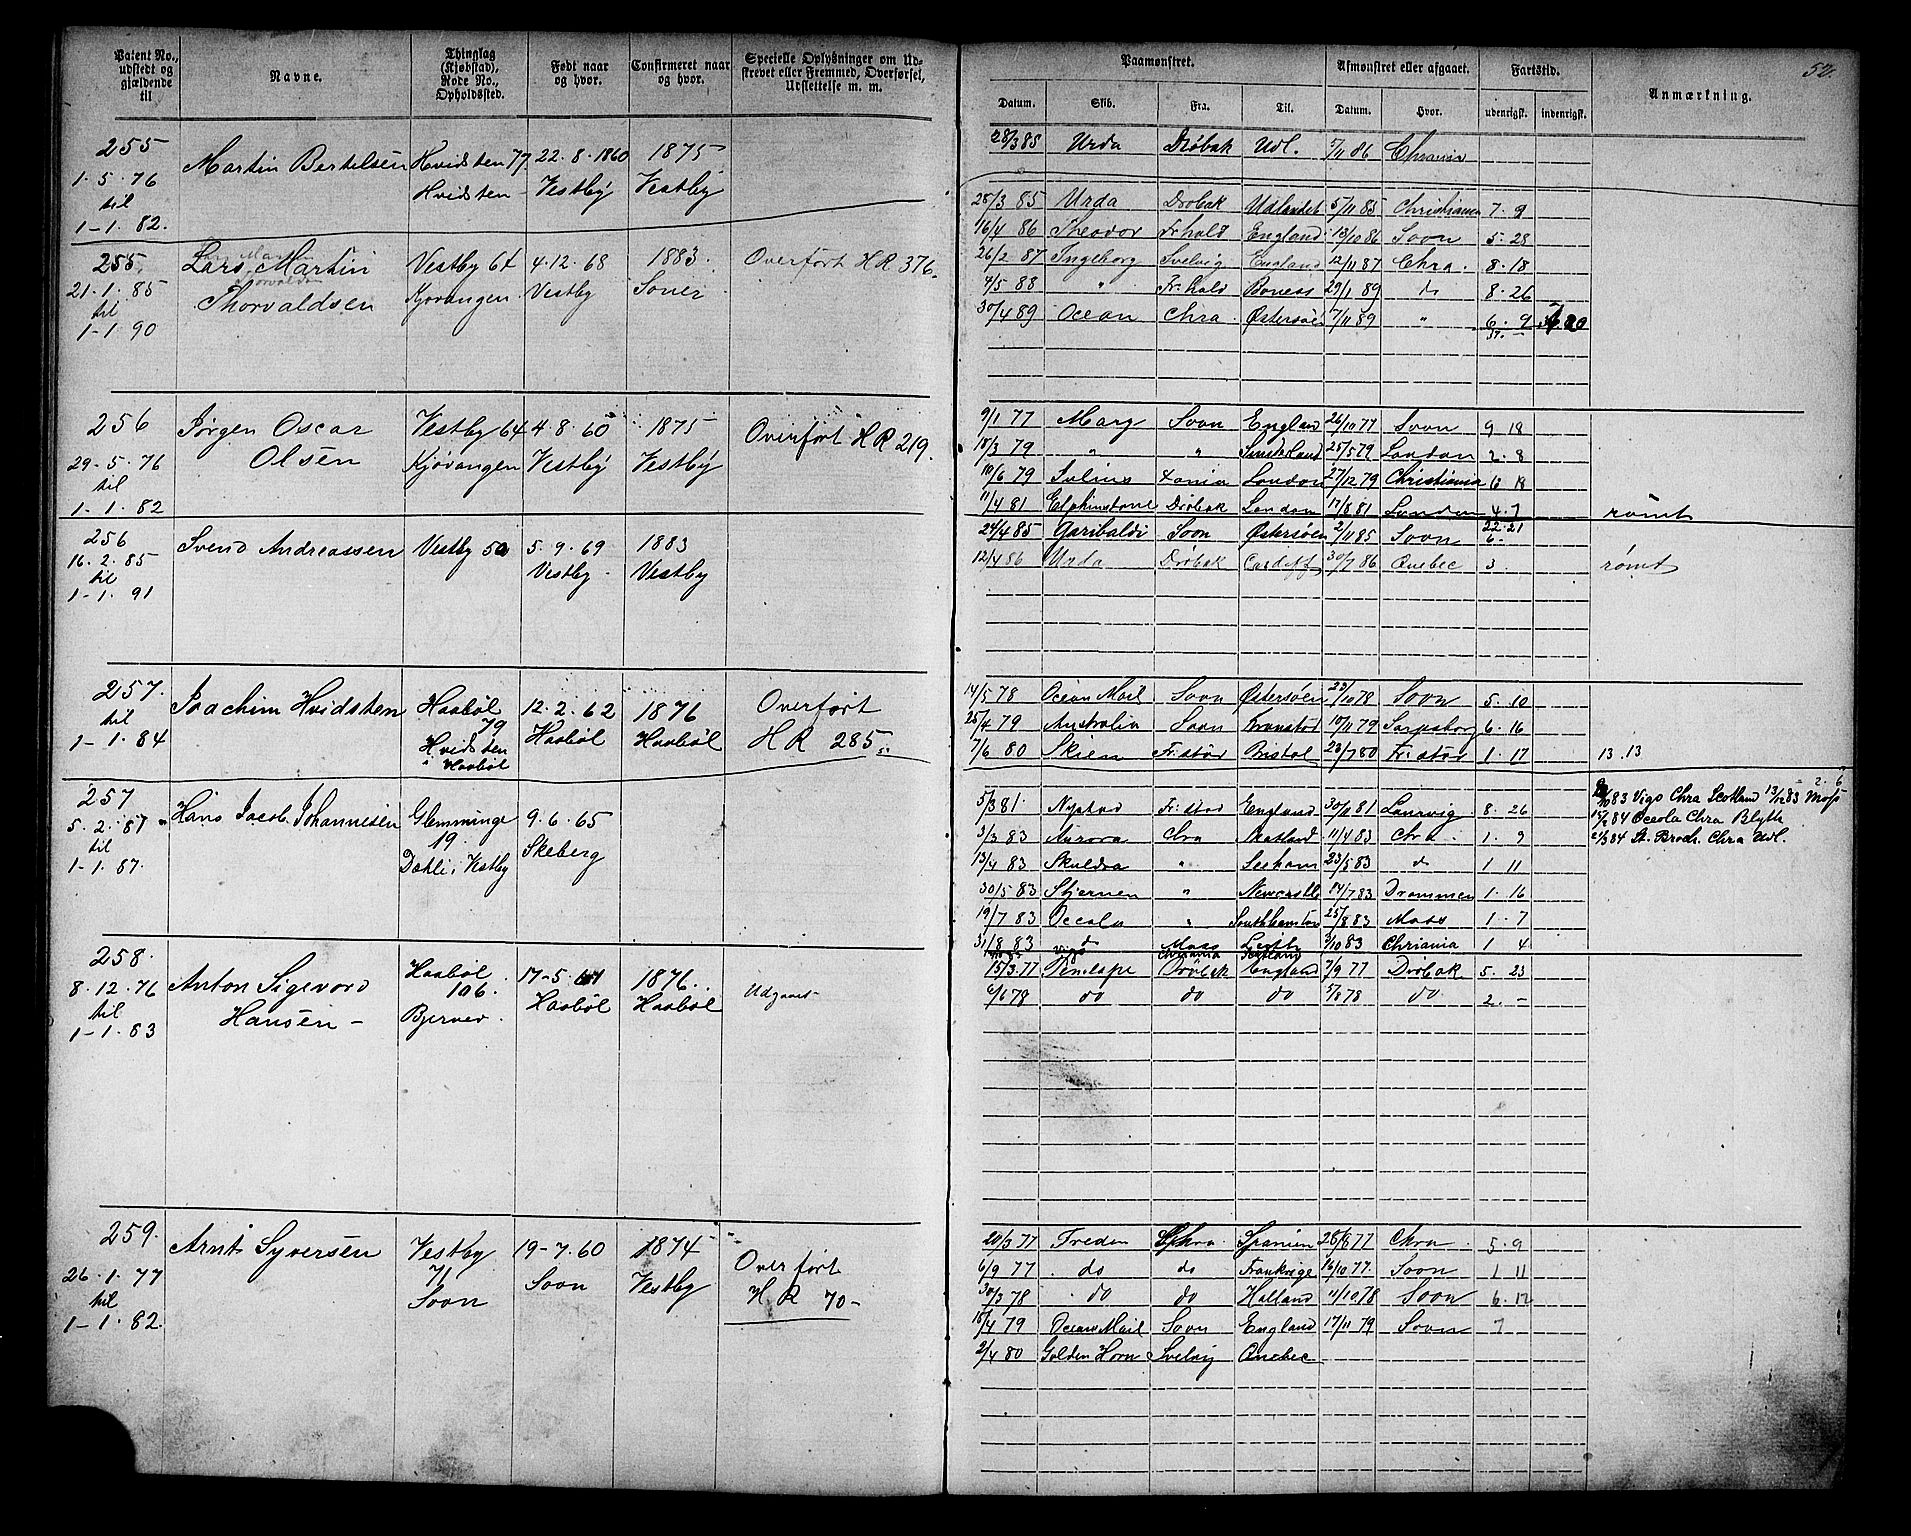 52.
Patent No., udstedt og gjældende til
Navne.
Thinglag (Kjøbstad), Rode No., Opholdssted.
Født naar og hvor.
Confirmeret naar og hvor.
Specielle Oplysninger om Udskrevet eller Fremmed, Overførsel, Udslettelse m. m.
Paamønstret.
Afmønstret eller afgaaet.
Fartstid.
Anmærkning.
Datum. Skib. Fra. Til. Datum. Hvor. udenrigsk. indenrigsk.
255 1.5.76 til 1-1.82.
Martin Bertelsen
Hvidsten 77. Hvidsten
22.8.1860 Vestby
1875 Vestby
28/3 85 Urda Drøbak Udl. 5/11 86 Chrania
255 21.1.85 til 1-1.90
Lars Martin Thorvaldsen
Vestby 64 Kjøvangen.
4.12.68 Vestby
1883. Soner
Overført H R 376.
28/3 85 Urda Drøbak Udlandet 5/11 85 Christiania 7.9
16/4 86 Theodor Fr.hald England 13/10 86 Soon 5.28
26/2 87 Ingeborg Svelvig England 12/11 87 Chra. 8.18
4/5 88 " Fr.hald Boness 29/1 89 do 8.26
30/4 89 Ocean Chra. Østersøen 7/11 89 " 6.9
256 29.5.76 til 1-1.82
Jørgen Oscar Olsen
Vestby 64 Kjøvangen
4.8.60 Vestby
1875 Vestby
Overført H R 219.
9/1 77 Marg Soon England 26/10 77 Soon 9 18
18/3 79 " " Sunderland 25/5 79 London 2.8
10/6 79 Julius Xania London 27/12 79 Christiania 6 18
11/4 81 Elphinstone Drøbak London 17/8 81 London 4.7 rømt
22.21
256 16.2.85 til 1-1.91
Svend Andreassen
Vestby 50
5.9.69 Vestby
1883 Vestby
24/4 85 Garibaldi Soon Østersøen 2/11 85 Soon 6-
12/4 86 Urda Drøbak Cardiff 30/7 86 Quebec 3 rømt
257. til 1-1.84
Joachim Hvidsten
Haabøl 79 Hvidsten i Haabøl
12.2.62 Haabøl
1876 Haabøl
Overført H R 285.
14/5 78 Ocean Mail Soon Østersøen 23/10 78 Soon 5.10
25/4 79 Australia Soon Kronstad 10/11 79 Sarpsborg 6.16
7/6 80 Skien Fr:stad Bristol 23/7 80 Fr:stad 1.17 13.13
257 5.2.81 til 1-1.87.
Hans Jacob Johannesen
Glemminge 19. Dahle i Vestby
9.6.65 Skeberg
5/3 81. Nystad Fr:stad England 30/11 81 Laurvig 8.26
3/3 83 Aurora Chra Skotland 11/4 83 Chra 1.9
13/4 83 Skuldra " Seeham 23/5 83 do 1 11
30/5 83 Stjernen " Newcastle 14/7 83 Drammen 1.16
19/7 83 Oceola " Southhamton 25/8 83 Moss 1.7
31/8 83 do Moss Leith 9/10 83 Chriania 1 4
2.6
/10 83 Vigo Chra Scotland 13/12 83 Moss
/2 84 Oceola Chra Blyth
2/3 84 St. Brodr. Chra Udl.
258. 8.12.76 til 1-1.83
Anton Sigevard Hansen
Haabøl 106. Bjerner.
17-5.61 Haabøl
1876. Haabøl
Udgaaet
Vigo Chriania Scotland
15/3.77 Penelope Drøbak England 7/9 77 Drøbak 5.23
6/6 78 do do do 5/8 78 do 2.-
259. 26.1.77 til 1-1.82.
Arnt Syversen
Vestby 71 Soon
19-7.60 Soon
1874 Vestby
Overført H. R 70-
20/3 77 Freden Chra. Spanien 28/8 77 Chra. 5.9
6/9 77 do do Frankrige 16/10 77. Soon 1 11
30/3 78 do do Holland 11/10 78 Soon 6.12
18/4 79 Ocean Mail Soon England 17/11 79 Soon 7
2/4 80 Golden Horn Svelvig Quebec